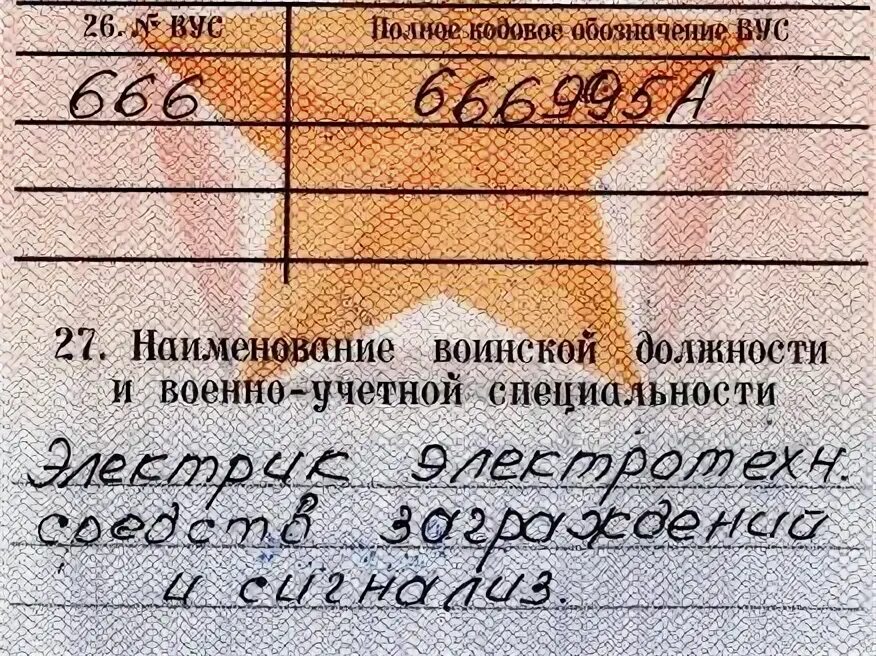 26. № ВУС Полное кодовое обозначение ВУС
666 666995А
27. Наименование воинской должности
и военно-учетной специальности
Электрик электротехн.
средств заграждений
и сигнализ.